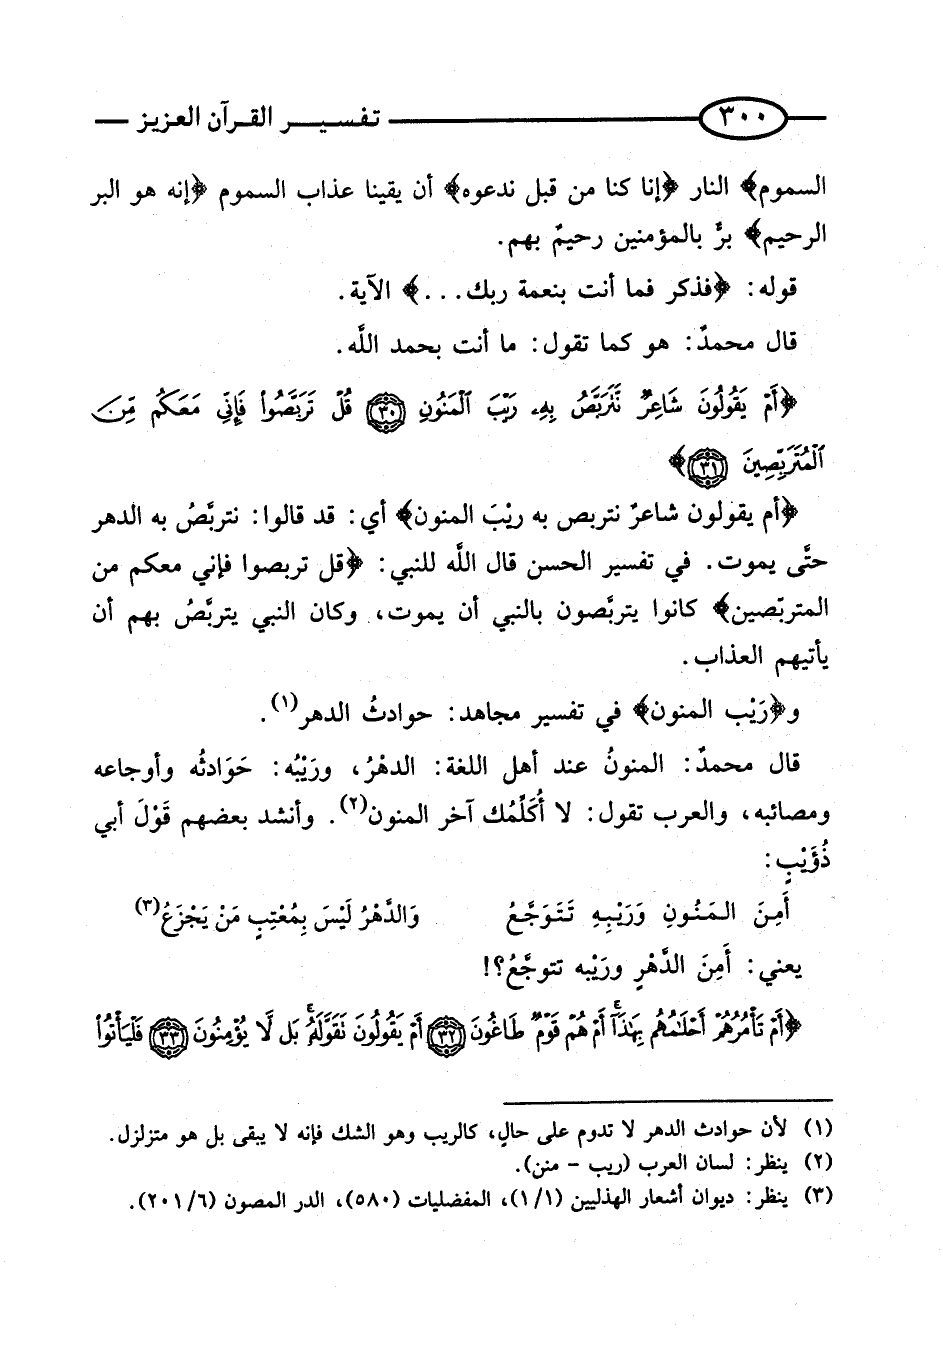 ٣٠٠ تفسير القرآن العزيز
السموم﴾ النار ﴿إنا كنا من قبل ندعوه﴾ أن يقينا عذاب السموم ﴿إنه هو البر
الرحيم﴾ برٌّ بالمؤمنين رحيمٌ بهم.
قوله: ﴿فذكر فما أنت بنعمة ربك...﴾ الآية.
قال محمدٌ: هو كما تقول: ما أنت بحمد اللَّه.
﴿أَمۡ يَقُولُونَ شَاعِرٞ نَّتَرَبَّصُ بِهِۦ رَيۡبَ ٱلۡمَنُونِ ٣٠ قُلۡ تَرَبَّصُواْ فَإِنِّي مَعَكُم مِّنَ
ٱلۡمُتَرَبِّصِينَ ٣١﴾
﴿أم يقولون شاعرٌ نتربص به ريْبَ المنون﴾ أي: قد قالوا: نتربَّصُ به الدهر
حتَّى يموت. في تفسير الحسن قال اللَّه للنبي: ﴿قل تربصوا فإني معكم من
المتربّصين﴾ كانوا يتربَّصون بالنبي أن يموت، وكان النبي يتربَّصُ بهم أن
يأتيهم العذاب.
و﴿رَيْب المنون﴾ في تفسير مجاهد: حوادثُ الدهر(١).
قال محمدٌ: المنونُ عند أهل اللغة: الدهْرُ، وريَبْه: حَوَادثُه وأوجاعه
ومصائبه، والعرب تقول: لا أُكَلِّمُك آخر المنون(٢). وأنشد بعضهم قَوْلَ أبي
ذُؤَيْبٍ:
أَمِنَ المَنُونِ وَرَيْبِهِ تَتَوَجَّعُ وَالدَّهْرُ لَيْسَ بِمُعْتِبٍ مَنْ يَجْزَعُ(٣)
يعني: أَمِنَ الدَّهْرِ وريْبه تتوجَّعُ؟!
﴿أَمۡ تَأۡمُرُهُمۡ أَحۡلَٰمُهُم بِهَٰذَآۚ أَمۡ هُمۡ قَوۡمٞ طَاغُونَ ٣٢ أَمۡ يَقُولُونَ تَقَوَّلَهُۥۚ بَل لَّا يُؤۡمِنُونَ ٣٣ فَلۡيَأۡتُواْ
(١) لأن حوادث الدهر لا تدوم على حالٍ، كالريب وهو الشك فإنه لا يبقى بل هو متزلزل.
(٢) ينظر: لسان العرب (ريب - منن).
(٣) ينظر: ديوان أشعار الهذليين (١/١)، المفضليات (٥٨٠)، الدر المصون (٢٠١/٦).